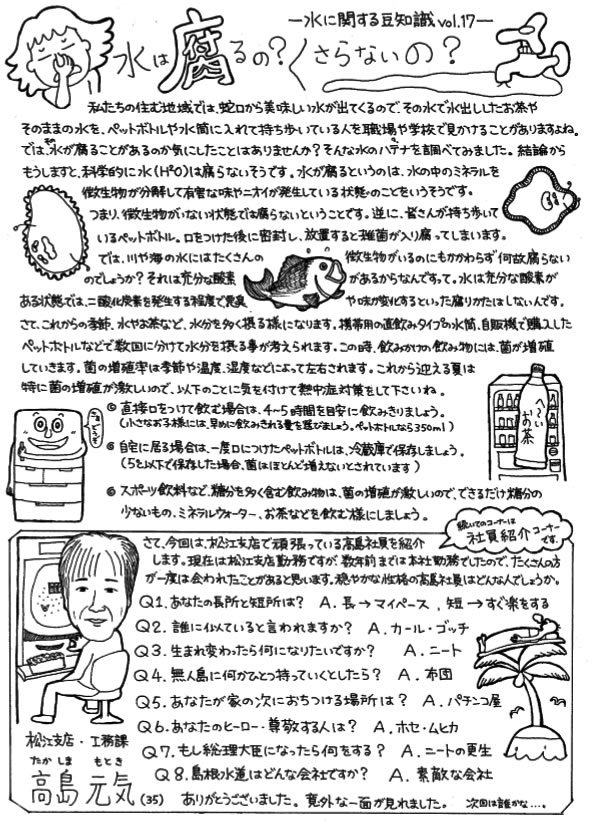 ―水に関する豆知識 vol.17―
水は腐るの?くさらないの?
私たちの住む地域では、蛇口から美味しい水が出てくるので、その水で水出ししたお茶や
そのままの水を、ペットボトルや水筒に入れて持ち歩いている人を職場や学校で見かけることがありますよね。
では、その水が腐ることがあるのか気にしたことはありませんか?そんな水のハテナを調べてみました。結論から
もうしますと、科学的に水(H²O)は腐らないそうです。水が腐るというのは、水の中のミネラルを
微生物が分解して有害な味やニオイが発生している状態のことをいうそうです。
つまり、微生物がいない状態では腐らないということです。逆に、皆さんが持ち歩いて
いるペットボトル。口をつけた後に密封し、放置すると雑菌が入り腐ってしまいます。
では、川や海の水にはたくさんの微生物がいるのにもかかわらず何故腐らない
のでしょうか?それは充分な酸素があるからなんですって。水は充分な酸素が
ある状態では、二酸化炭素を発生する程度で悪臭や味が変化するといった腐りかたはしないんです。
さて、これからの季節、水やお茶など、水分を多く摂る様になります。携帯用の直飲みタイプの水筒、自販機で購入した
ペットボトルなどで数回に分けて水分を摂る事が考えられます。この時、飲みかけの飲み物には、菌が増殖
していきます。菌の増殖率は季節や温度、湿度などによって左右されます。これから迎える夏は
特に菌の増殖が激しいので、以下のことに気を付けて熱中症対策をして下さいね。
◎ 直接口をつけて飲む場合は、4~5時間を目安に飲みきりましょう。
(小さなお子様には、早めに飲みきれる量を選びましょう。ペットボトルなら350ml)
◎ 自宅に居る場合は、一度口につけたペットボトルは、冷蔵庫で保存しましょう。
(5℃以下で保存した場合、菌はほとんど増えないとされています)
◎ スポーツ飲料など、糖分を多く含む飲み物は、菌の増殖が激しいので、できるだけ糖分の
少ないもの、ミネラルウォーター、お茶などを飲む様にしましょう。
へ~いお茶
続いてのコーナーは
社員紹介コーナー
です。
さて、今回は、松江支店で頑張っている高島社員を紹介
します。現在は松江支店勤務ですが、数年前までは本社勤務でしたので、たくさんの方
が一度は会われたことがあると思います。穏やかな性格の高島社員はどんな人でしょうか。
Q1. あなたの長所と短所は? A. 長→マイペース、短→すぐ楽をする
Q2. 誰に似ていると言われますか? A. カール・ゴッチ
Q3. 生まれ変わったら何になりたいですか? A. ニート
Q4. 無人島に何かひとつ持っていくとしたら? A. 布団
Q5. あなたが家の次におちつける場所は? A. パチンコ屋
Q6. あなたのヒーロー・尊敬する人は? A. ホセ・ムヒカ
Q7. もし総理大臣になったら何をする? A. ニートの更生
Q8. 島根水道はどんな会社ですか? A. 素敵な会社
松江支店・工務課
たかしま もとき
高島 元気(35)
ありがとうございました。意外な一面が見れました。 次回は誰かな…。